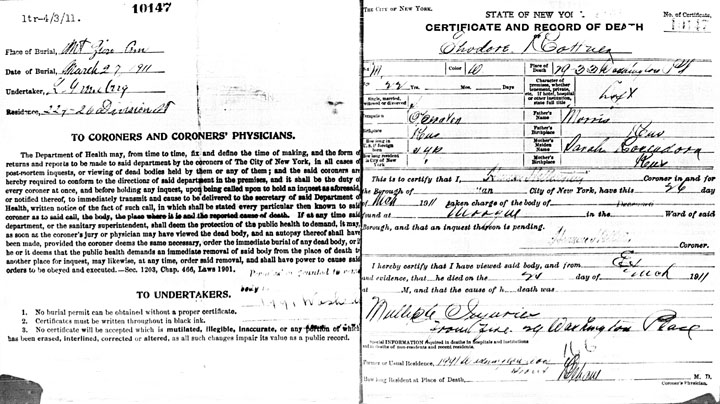 10147
1tr-4/3/11.
Place of Burial, Mt Zion Cem
Date of Burial, March 27 1911
Undertaker,
Residence, 227-26 Division St
TO CORONERS AND CORONERS' PHYSICIANS.
The Department of Health may, from time to time, fix and define the time of making, and the form of
returns and reports to be made to said department by the coroners of The City of New York, in all cases of
post-mortem inquests, or viewing of dead bodies held by them or any of them; and the said coroners are
hereby required to conform to the directions of said department in the premises, and it shall be the duty of
every coroner at once, and before holding any inquest, upon being called upon to hold an inquest as aforesaid,
or notified thereof, to immediately transmit and cause to be delivered to the secretary of said Department of
Health, written notice of the fact of such call, in which shall be stated every particular then known to said
coroner as to said call, the body, the place where it is and the reported cause of death. If at any time said
department, or the sanitary superintendent, shall deem the protection of the public health to demand, it may,
as soon as the coroner's jury or physician may have viewed the dead body, and an autopsy thereof shall have
been made, provided the coroner deems the same necessary, order the immediate burial of any dead body, or if
he or it deems that the public health demands an immediate removal of said body from the place of death to
another place for inquest, may likewise, at any time, order said removal, and shall have power to cause said
orders to be obeyed and executed.—Sec. 1203, Chap. 466, Laws 1901.
body
TO UNDERTAKERS.
1. No burial permit can be obtained without a proper certificate.
2. Certificates must be written throughout in black ink.
3. No certificate will be accepted which is mutilated, illegible, inaccurate, or any portion of which
has been erased, interlined, corrected or altered, as all such changes impair its value as a public record.
THE CITY OF NEW YORK.
STATE OF NEW YO
No. of Certificate,
CERTIFICATE AND RECORD OF DEATH
10147
Color W
Place of Death 29-33 Washington Pl
22 Yrs. Mos. Days
Character of premises, whether tenement, private, etc. If hotel, hospital or other institution, state full title
Single, married, widowed or divorced
Occupation Operator
Father's Name Morris
Birthplace Rus
Father's Birthplace Rus
How long in U.S. if foreign born
Mother's Maiden Name Sarah
How long resident in City of New York
Mother's Birthplace Rus
This is to certify that I, Coroner in and for
the Borough of City of New York, have this 26 day
of Mch 1911 taken charge of the body of
found at Morgue in the Ward of said
Borough, and that an inquest thereon is pending.
Coroner.
I hereby certify that I have viewed said body, and from
and evidence, that he died on the day of March 1911
at M., and that the cause of h death was
Multiple Injuries
from fire 29 Washington Place
Special INFORMATION required in deaths in hospitals and institutions
and in deaths of non-residents and recent residents.
Former or Usual Residence, 1991 Washington Ave
Bronx
How long Resident at Place of Death, M. D.
Coroner's Physician.